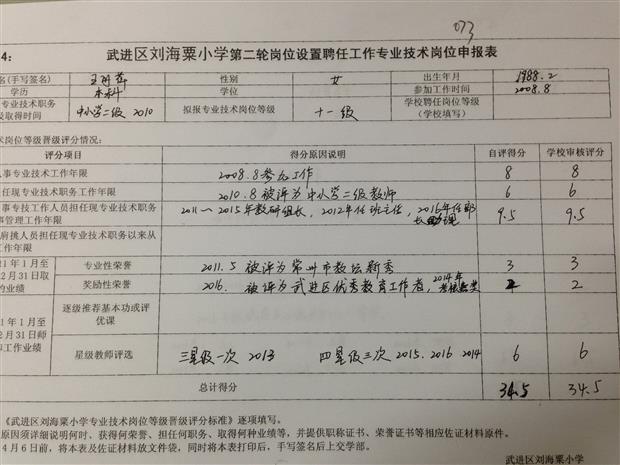 073
4: 武进区刘海粟小学第二轮岗位设置聘任工作专业技术岗位申报表
名(手写签名) 性别 女 出生年月 1988.2
学历 本科 学位 参加工作时间 2008.8
专业技术职务
及取得时间 中小学二级 2010 拟报专业技术岗位等级 十一级 学校聘任岗位等级
(学校填写)
术岗位等级晋级评分情况:
评分项目 得分原因说明 自评得分 学校审核评分
事专业技术工作年限 2008.8参加工作 8 8
任现专业技术职务工作年限 2010.8被评为中小学二级教师 6 6
事专技工作人员担任现专业技术职务
事管理工作年限 2011～2015年教研组长,2012年任班主任,2016年任部
长助理 9.5 9.5
肩挑人员担任现专业技术职务以来从
工作年限
1年1月至
2月31日取
的业绩
专业性荣誉 2011.5 被评为常州市教坛新秀 3 3
奖励性荣誉 2016. 被评为武进区优秀教育工作者, 2014年
2 2
1年1月至
2月31日师
和工作业绩
逐级推荐基本功或评
优课
星级教师评选 三星级一次 2013 四星级三次 2015.2016 2014 6 6
总计得分 34.5 34.5
《武进区刘海粟小学专业技术岗位等级晋级评分标准》逐项填写。
原因须详细说明何时、获得何荣誉、担任何职务、取得何种业绩等,并提供职称证书、荣誉证书等相应佐证材料原件。
4月6日前,将本表及佐证材料放文件袋,同时将本表打印后,手写签名后上交学部。
武进区刘海粟小学